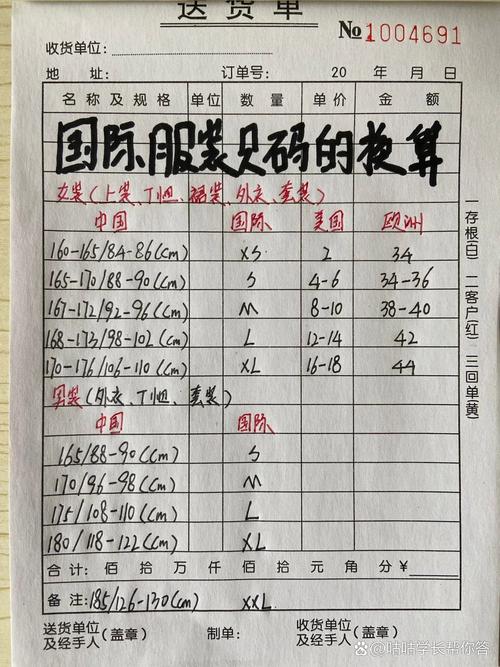 送货单
№1004691
收货单位:
地 址: 订单号: 20 年 月 日
名称及规格 单位 数量 单价 金额
国际服装尺码的换算
女装(上装、T恤、裙装、外衣、套装)
中国 国际 美国 欧洲
160-165/84-86(cm) XS 2 34
165-170/88-90(cm) S 4-6 34-36
167-172/92-96(cm) M 8-10 38-40
168-173/98-102(cm) L 12-14 42
170-176/106-110(cm) XL 16-18 44
男装(外衣、T恤、套装)
中国 国际
165/88-90(cm) S
170/96-98(cm) M
175/108-110(cm) L
180/118-122(cm) XL
合计: 佰 拾 万 仟 佰 拾 元 角 分¥
备注:185/126-130(cm) XXL
送货单位及经手人(盖章) 制单: 收货单位及经手人(盖章)
一存根(白) 二客户(红) 三回单(黄)
@咕咕学长帮你答